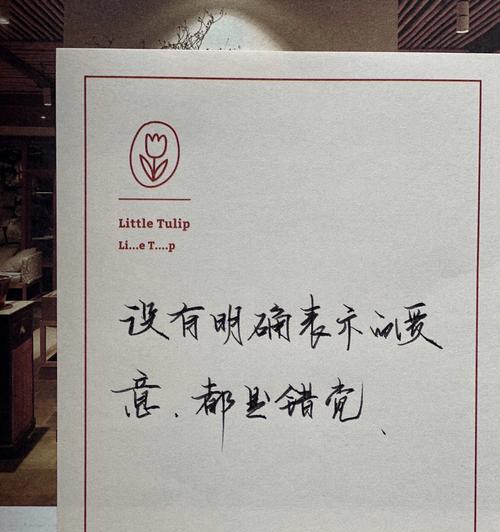 Little Tulip
Li...e T....p
没有明确表示的爱
意、都是错觉、